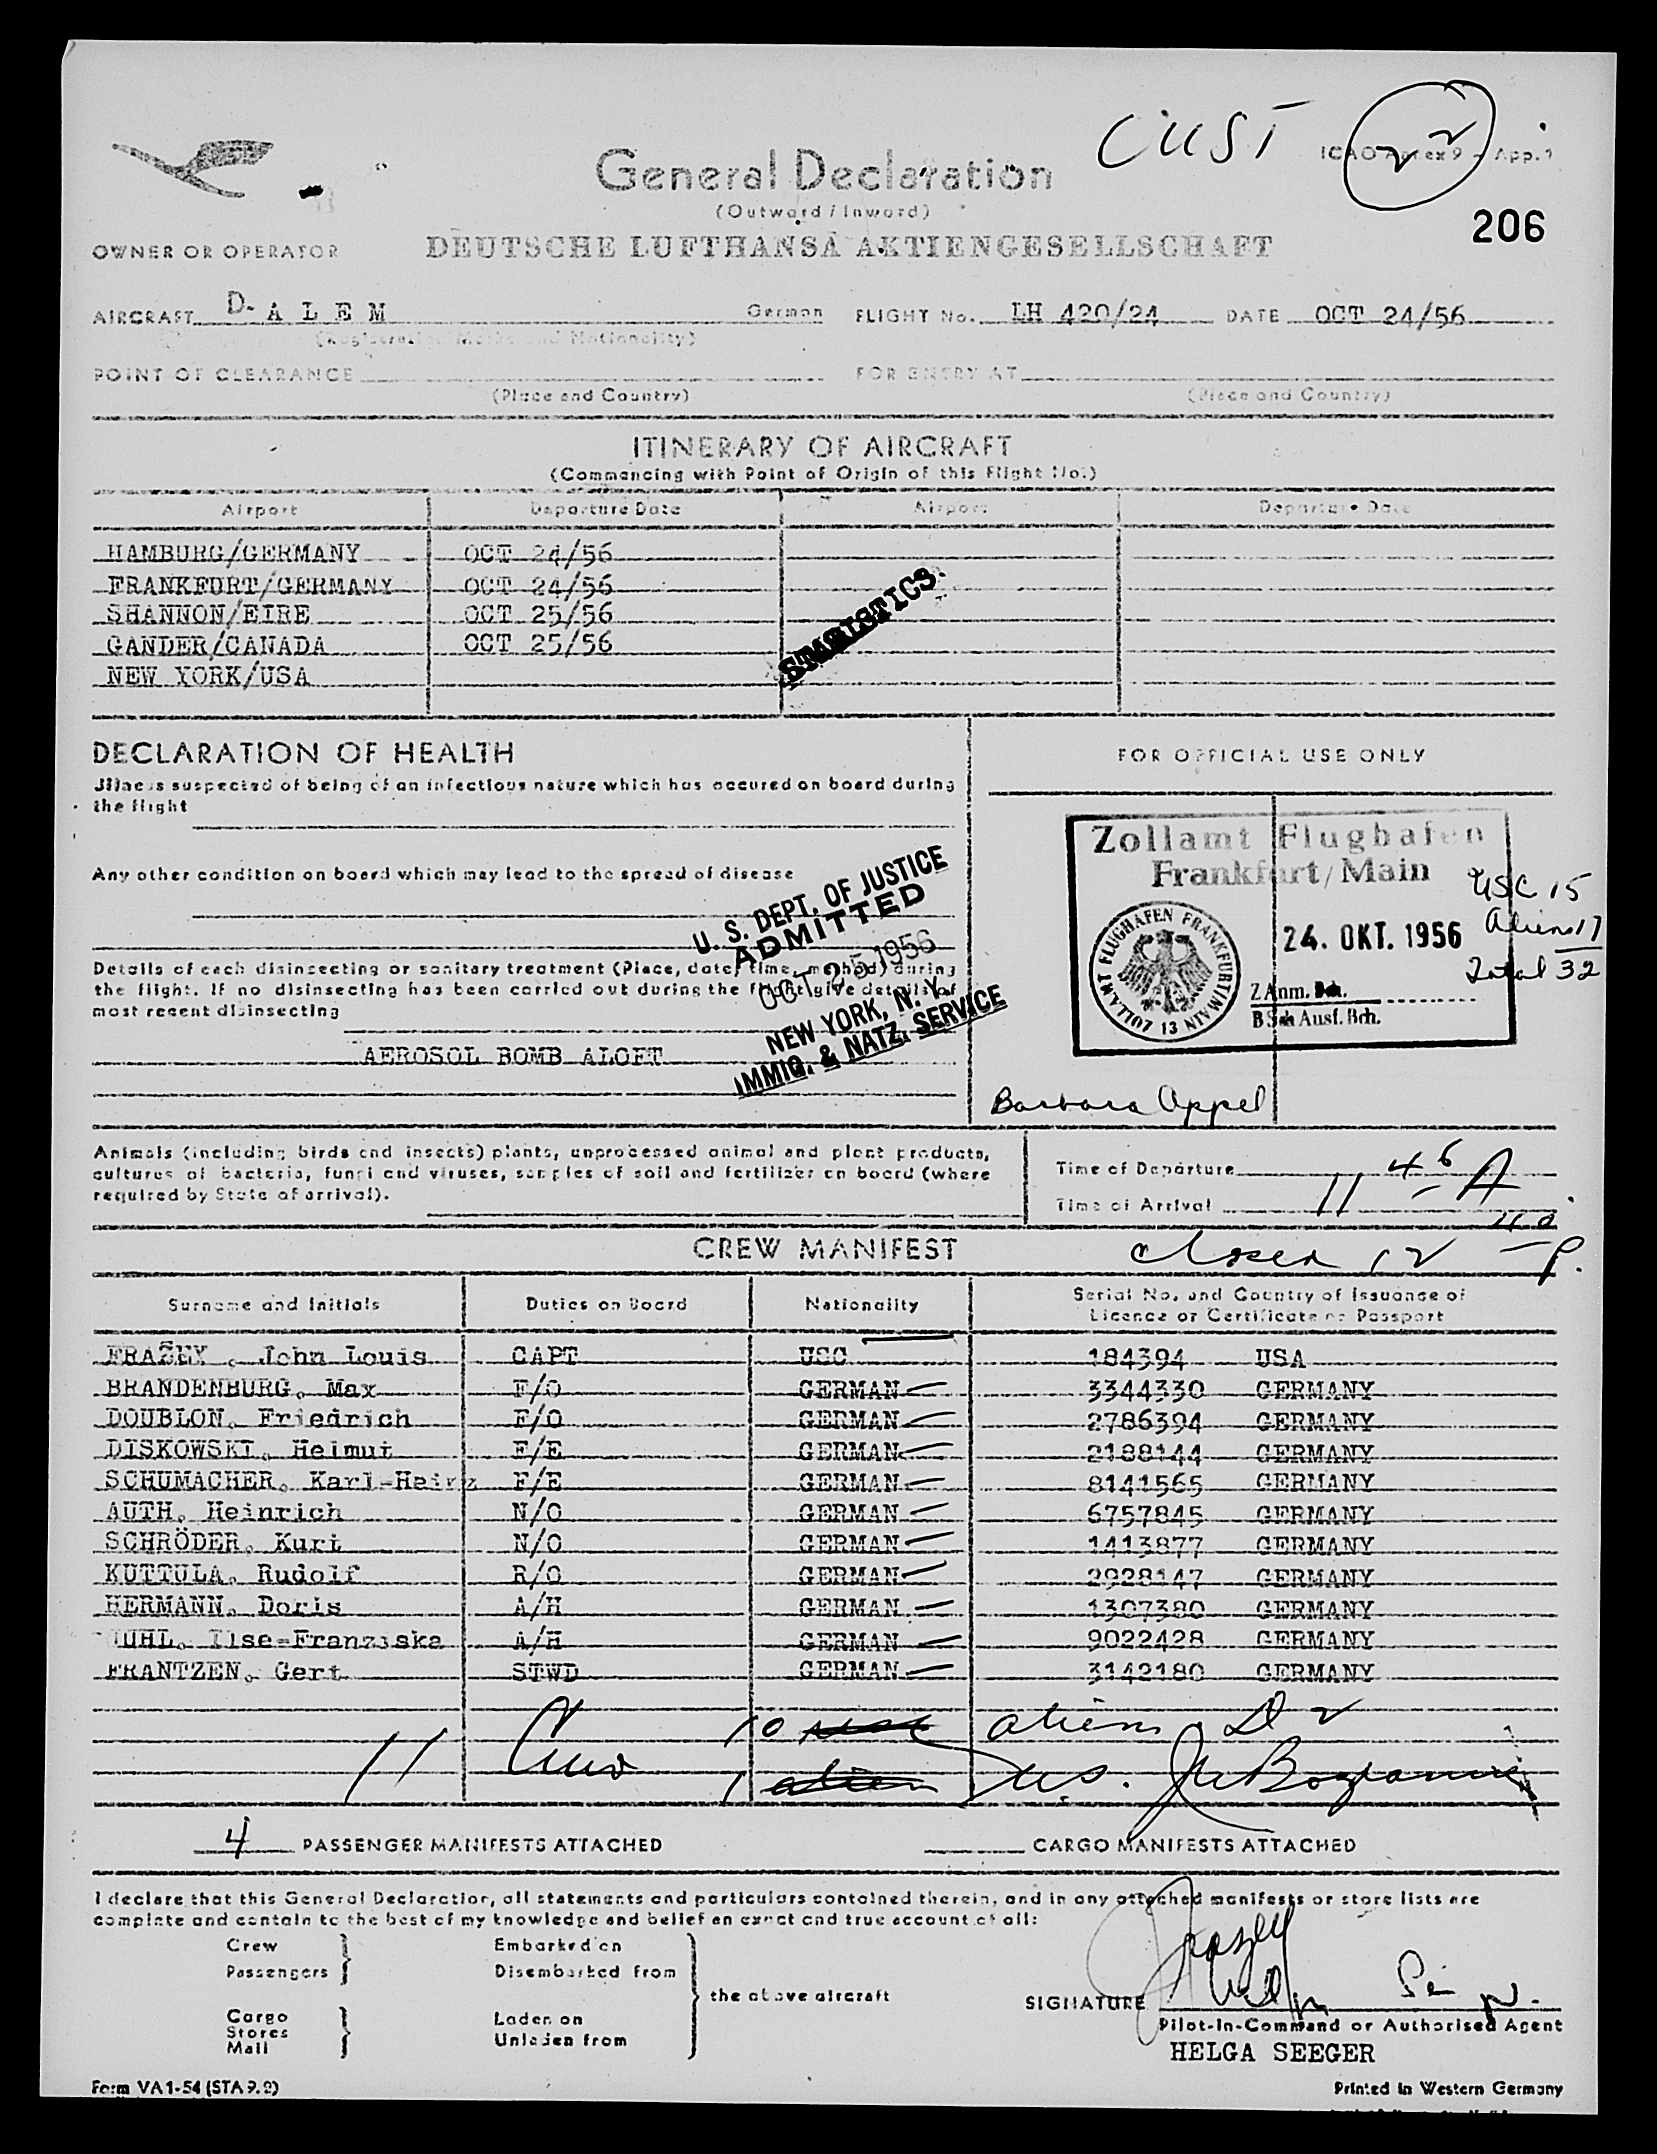 CUST 22
ICAO Annex 9 - App. 1
General Declaration
(Outward / Inward)
206
OWNER OR OPERATOR DEUTSCHE LUFTHANSA AKTIENGESELLSCHAFT
AIRCRAFT D-ALEM German FLIGHT No. LH 420/24 DATE OCT 24/56
(Registration Marks and Nationality)
POINT OF CLEARANCE FOR ENTRY AT
(Place and Country) (Place and Country)
ITINERARY OF AIRCRAFT
(Commencing with Point of Origin of this Flight No.)
Airport Departure Date Airport Departure Date
HAMBURG/GERMANY OCT 24/56
FRANKFURT/GERMANY OCT 24/56
SHANNON/EIRE OCT 25/56
GANDER/CANADA OCT 25/56
NEW YORK/USA
STATISTICS
DECLARATION OF HEALTH
Jllness suspected of being of an infectious nature which has occured on board during
the flight
Any other condition on board which may lead to the spread of disease
Details of each disinsecting or sanitary treatment (Place, date, time, method) during
the flight. If no disinsecting has been carried out during the flight give details of
most recent disinsecting
AEROSOL BOMB ALOFT
U. S. DEPT. OF JUSTICE
ADMITTED
OCT 25 1956
NEW YORK, N. Y.
IMMIG. & NATZ. SERVICE
FOR OFFICIAL USE ONLY
Zollamt Flughafen
Frankfurt/Main
ZOLLAMT FLUGHAFEN FRANKFURT/MAIN 13
24. OKT. 1956
Z Anm. Bch.
B Sch Ausf. Bch.
USC 15
Alien 17
Total 32
Barbara Appel
Animals (including birds and insects) plants, unprocessed animal and plant products,
cultures of bacteria, fungi and viruses, samples of soil and fertilizer on board (where
required by State of arrival).
Time of Departure
Time of Arrival 11 46 A
closed 12
CREW MANIFEST
Surname and Initials Duties on Board Nationality Serial No. and Country of Issuance of
Licence or Certificate or Passport
FRAZEY, John Louis CAPT USC 184394 USA
BRANDENBURG, Max F/O GERMAN 3344330 GERMANY
DOUBLON, Friedrich F/O GERMAN 2786394 GERMANY
DISKOWSKI, Helmut F/E GERMAN 2188144 GERMANY
SCHUMACHER, Karl-Heinz F/E GERMAN 8141565 GERMANY
AUTH, Heinrich N/O GERMAN 6757845 GERMANY
SCHRÖDER, Kurt N/O GERMAN 1413877 GERMANY
KUTTULA, Rudolf R/O GERMAN 2928147 GERMANY
HERMANN, Doris A/H GERMAN 1307380 GERMANY
UHL, Ilse-Franziska A/H GERMAN 9022428 GERMANY
FRANTZEN, Gert STWD GERMAN 3142180 GERMANY
10 aliens D2
11 Crew 1 alien US.
4 PASSENGER MANIFESTS ATTACHED CARGO MANIFESTS ATTACHED
I declare that this General Declaration, all statements and particulars contained therein, and in any attached manifests or store lists are
complete and contain to the best of my knowledge and belief an exact and true account of all:
Crew Embarked on
Passengers Disembarked from
the above aircraft
Cargo Laden on
Stores
Mail Unladen from
Frazey
SIGNATURE
Pilot-in-Command or Authorised Agent
HELGA SEEGER
Form VA1-54 (STA 9.2) Printed in Western Germany